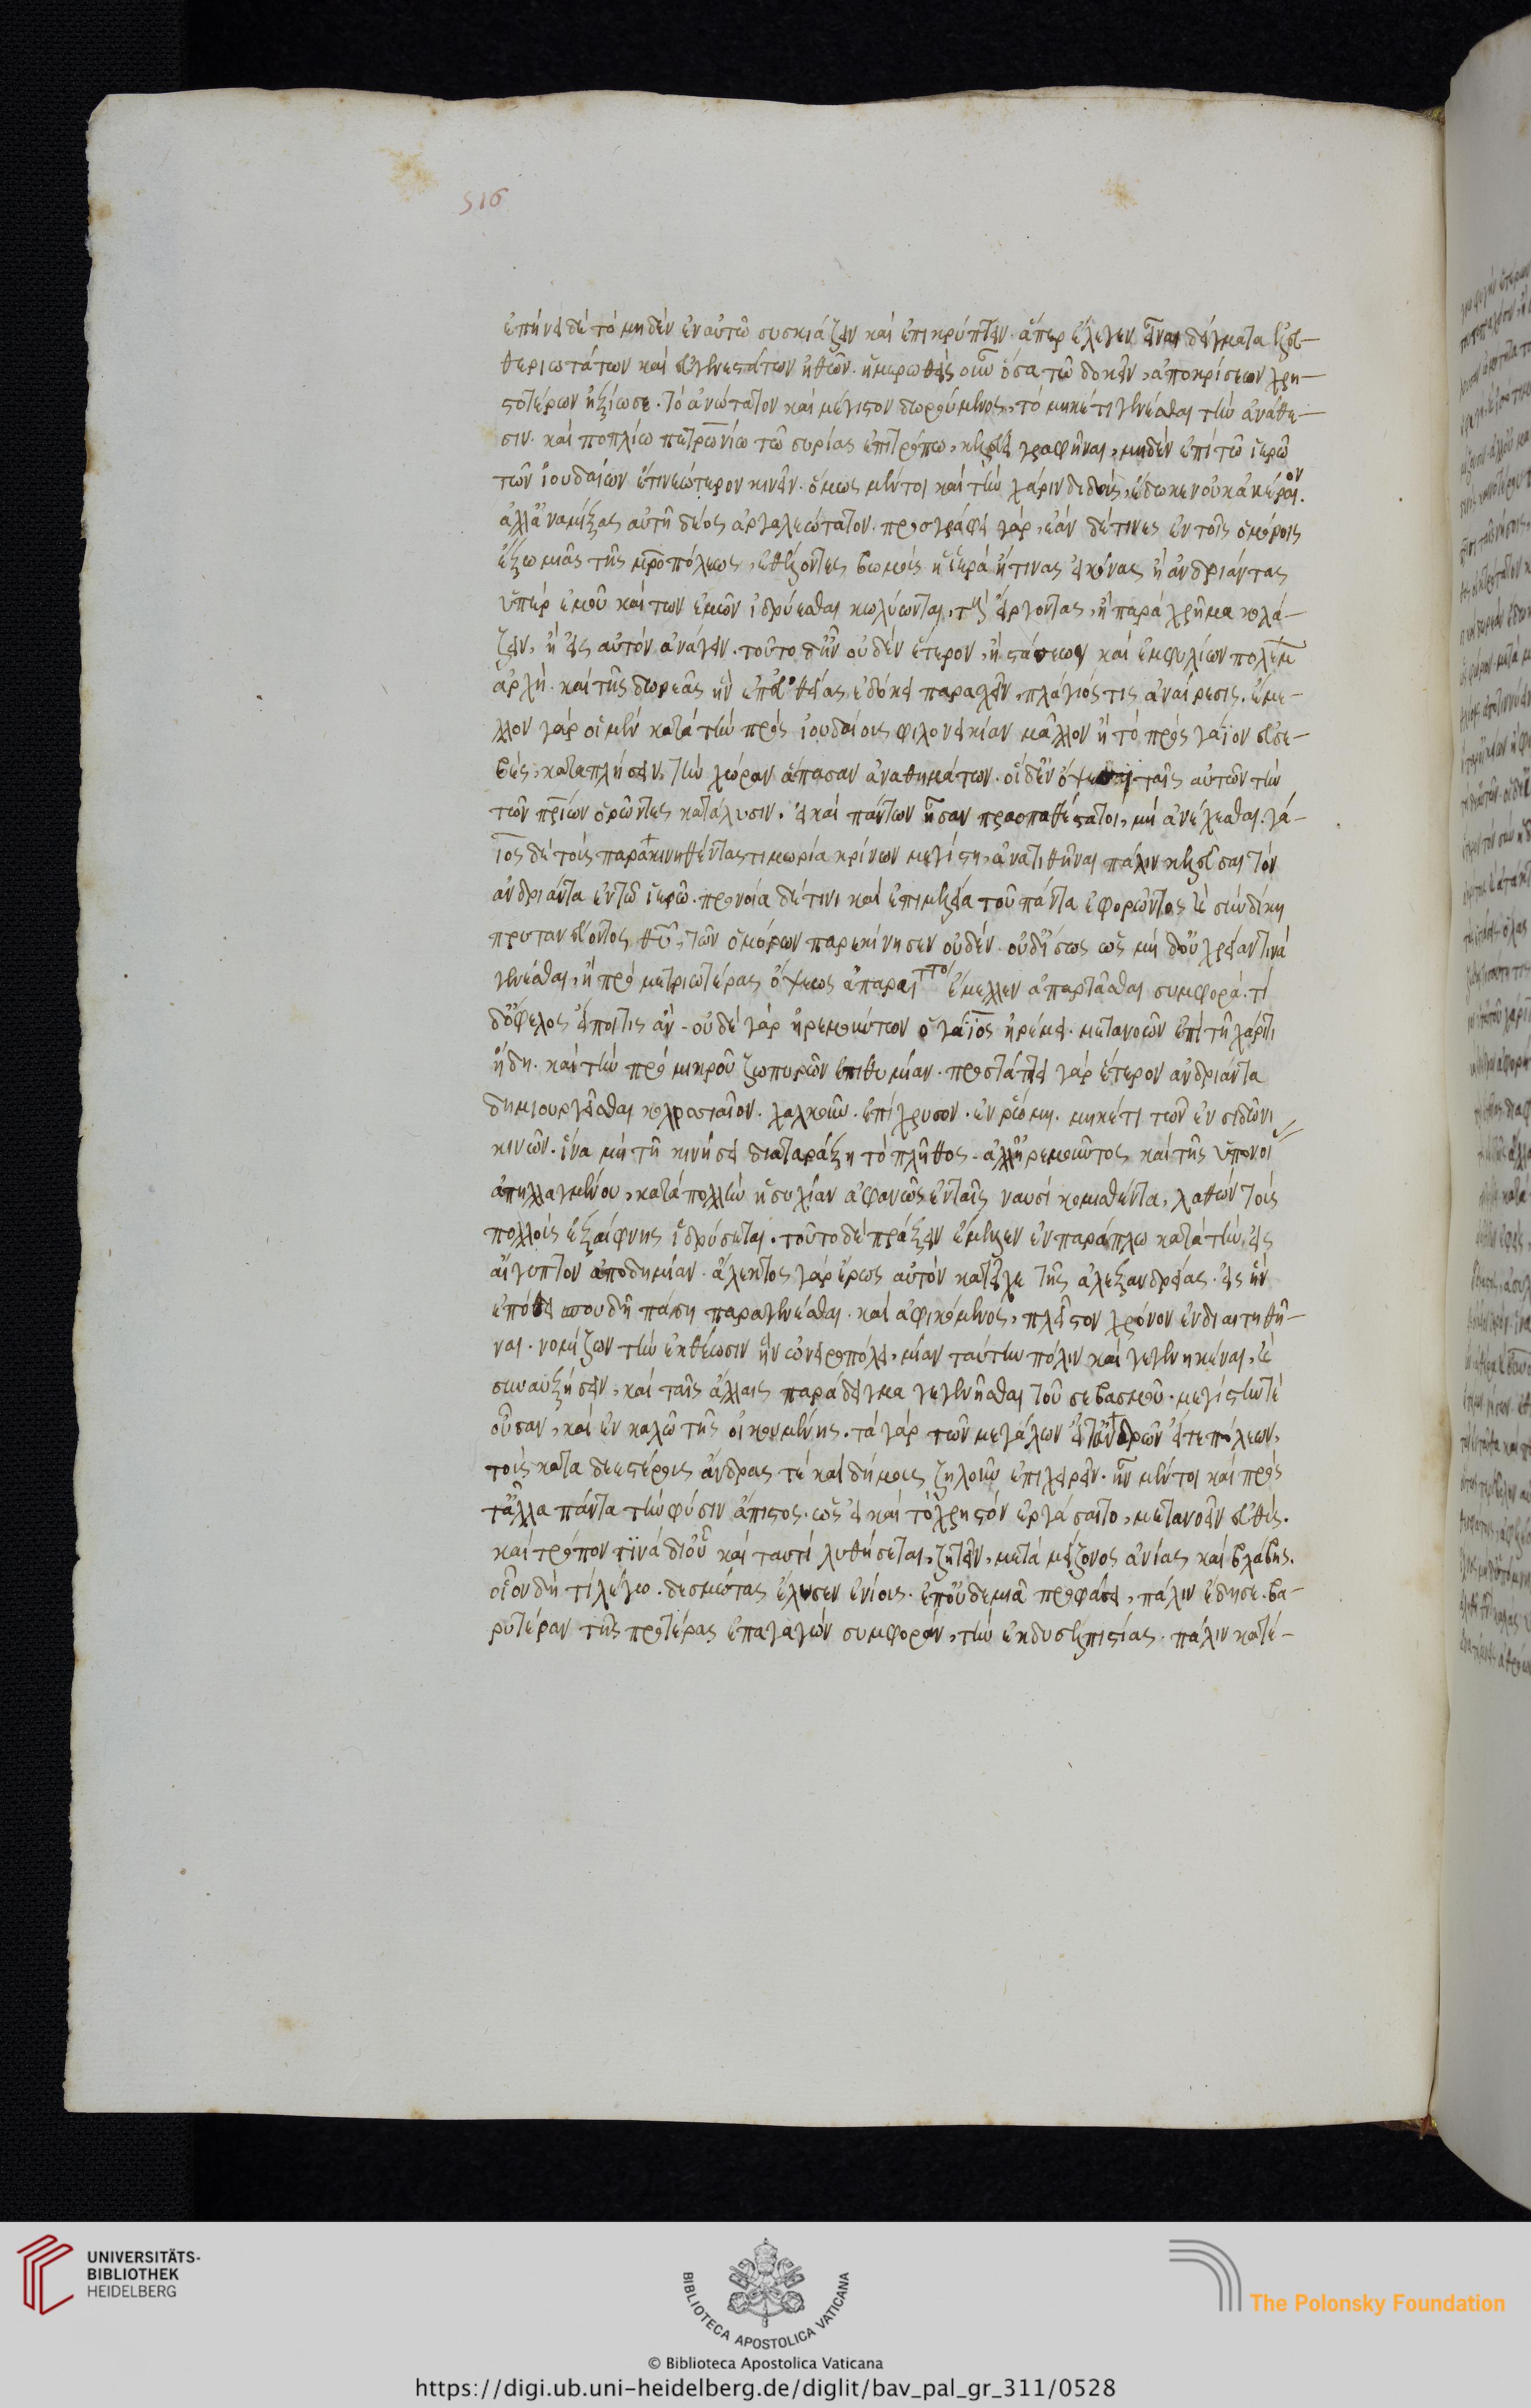 516
ἐπήνει δὲ τὸ μηδὲν ἐν αὐτῶ συσκιάζειν καὶ ἐπικρύπτειν. ἅπερ ἔλεγεν εἶναι δείγματα ἐλευ-
θεριωτάτων καὶ εὐγενεστάτων ἠθῶν. ἡμερωθεὶς οὖν ὅσα τῶ δοκεῖν, ἀποκρίσεων χρη-
στοτέρων ἠξίωσε. τὸ ἀνώτατον καὶ μέγιστον δωρούμενος, τὸ μηκέτι γενέσθαι τὴν ἀνάθε-
σιν. καὶ ποπλίω πετρωνίω τῶ συρίας ἐπιτρόπω, κελεύει γραφῆναι, μηδὲν ἐπὶ τῶ ἱερῶ
τῶν ἰουδαίων ἔτι νεώτερον κινεῖν. ὅμως μέντοι καὶ τὴν χάριν διδοὺς, ἔδωκεν οὐκ ἀκέραιον.
ἀλλ' ἀναμίξας αὐτῆ δέος ἀργαλεώτατον. προσγράφει γάρ, ἐὰν δέ τινες ἐν τοῖς ὁμόροις
ἔξω μιᾶς τῆς μητροπόλεως, ἐθέλοντες βωμοὺς ἢ ἱερὰ ἤ τινας εἰκόνας ἢ ἀνδριάντας
ὑπὲρ ἐμοῦ καὶ των ἐμῶν ἱδρύεσθαι κωλύωνται, τοὺς εἴργοντας, ἢ παρὰ χρῆμα κολά-
ζειν, ἢ εἰς αὐτὸν ἀνάγειν. τοῦτο δ' ἦν οὐδὲν ἕτερον, ἢ στάσεων καὶ ἐμφυλίων πολέμων
ἀρχὴ. καὶ τῆς δωρεᾶς ἣν ἐπ' εὐθείας ἐδόκει παρασχεῖν, πλάγιός τις ἀναίρεσις. ἔμε-
λλον γὰρ οἱ μὲν κατὰ τὴν πρὸς ἰουδαίους φιλονεικίαν μᾶλλον ἢ τὸ πρὸς γάϊον εὐσε-
βὲς, καταπλήσειν, τὴν χώραν ἅπασαν ἀναθημάτων. οἱ δ' ἐν ὄψεσι ταῖς αὐτῶν τὴν
τῶν πατρίων ὁρῶντες κατάλυσιν. εἰ καὶ πάντων ἦσαν πραοπαθέστατοι, μὴ ἀνέχεσθαι. γά-
ϊος δὲ τοὺς παρακινηθέντας τιμωρία κρίνων μεγίστη, ἀνατιθῆναι πάλιν κελεῦσαι τὸν
ἀνδριάντα ἐν τῶ ἱερῶ. προνοία δέ τινι καὶ ἐπιμελεία τοῦ πάντα ἐφορῶντος καὶ σὺν δίκη
πρυτανεύοντος θεοῦ, τῶν ὁμόρων παρεκίνησεν οὐδὲν. οὐδ' εἴσως ὡς μὴ δ' οὗ χρείαν τινὰ
γενέσθαι, ἢ πρὸ μετριωτέρας ὄψεως ἀπαραίτητο ἔμελλεν ἀπαρτᾶσθαι συμφορά. τί
δ' ὄφελος εἴποι τις ἄν. οὐδὲ γὰρ ἠρεμούντων ὁ γάϊος ἠρέμει. μετανοῶν ἐπὶ τῆ χάριτι
ἤδη. καὶ τὴν πρὸ μικροῦ ζωπυρῶν ἐπιθυμίαν. προστάττει γὰρ ἕτερον ἀνδριάντα
δημιουργεῖσθαι κολοσσιαῖον. χαλκοῦν. ἐπίχρυσον. ἐν ῥώμη. μηκέτι τῶν ἐν σιδῶνι
κινῶν. ἵνα μὴ τῆ κινήσει διαταράξη τὸ πλῆθος. ἀλλ' ἠρεμοῦντος καὶ τῆς ὑπονοί
ἀπηλλαγμένου, κατὰ πολλὴν ἡσυχίαν ἀφανῶς ἐν ταῖς ναυσὶ κομισθέντα, λαθὼν τοὺς
πολλοὺς ἐξαίφνης ἱδρύσεται. τοῦτο δὲ πράξειν ἔμελλεν ἐν παράπλω κατὰ τὴν, εἰς
αἴγυπτον ἀποδημίαν. ἄλεκτος γὰρ ἔρως αὐτὸν κατεῖχε τῆς ἀλεξανδρείας. εἰς ἣν
ἐπόθει σπουδῆ πάση παραγενέσθαι. καὶ ἀφικόμενος, πλεῖστον χρόνον ἐνδιαιτηθῆ-
ναι. νομίζων τὴν ἐκθέωσιν ἣν ὠνειροπόλει, μίαν ταύτην πόλιν καὶ γεγενηκέναι, καὶ
συναυξήσειν, καὶ ταῖς ἄλλαις παράδειγμα γεγενῆσθαι τοῦ σεβασμοῦ. μεγίστην τὲ
οὖσαν, καὶ ἐν καλῶ τῆς οἰκουμένης. τὰ γὰρ τῶν μεγάλων εἴτ' ἀνδρῶν εἴτε πόλεων,
τοὺς καταδεεστέρους ἄνδρας τὲ καὶ δήμους ζηλοῦν ἐπιχειρεῖν. ἦν μέντοι καὶ πρὸς
τἄλλα πάντα τὴν φύσιν ἄπιστος. ὡς εἰ καὶ τὸ χρηστὸν ἐργάσαιτο, μετανοεῖν εὐθὺς.
καὶ τρόπον τινὰ δι' οὗ καὶ ταυτὶ λυθήσεται, ζητεῖν, μετὰ μείζονος ἀνίας καὶ βλάβης.
οἷον δή τι λέγω. δεσμώτας ἔλυσεν ἐνίους. ἐπ' οὐδεμιᾶ προφάσει, πάλιν ἔδησε. βα-
ρυτέραν τῆς προτέρας ἐπαγαγὼν συμφορὰν, τὴν ἐκ δυσελπιστίας. πάλιν κατέ-
UNIVERSITÄTS-
BIBLIOTHEK
HEIDELBERG
BIBLIOTECA APOSTOLICA VATICANA
The Polonsky Foundation
© Biblioteca Apostolica Vaticana
https://digi.ub.uni-heidelberg.de/diglit/bav_pal_gr_311/0528